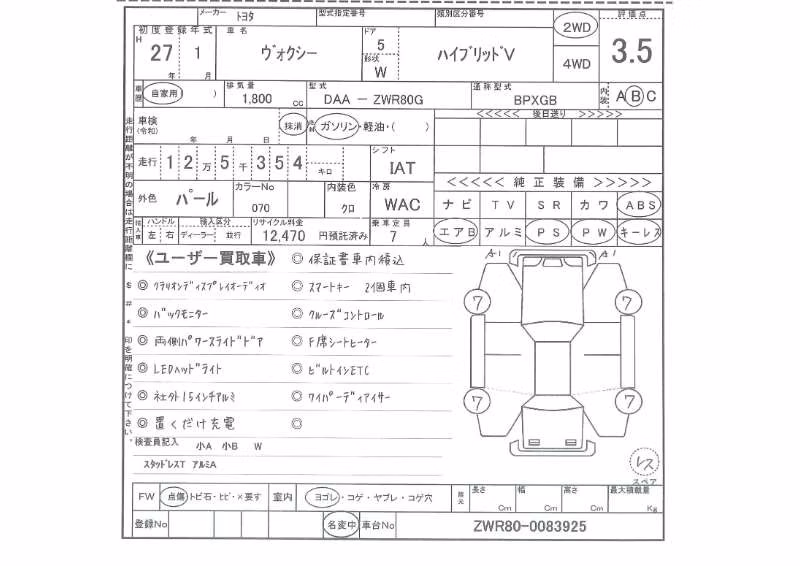 メーカー トヨタ 型式指定番号 類別区分番号 2WD 評価点
初度登録年式 車名 ドア
H 27 年 1 月 ヴォクシー 5 形状 W ハイブリッドV 4WD 3.5
車歴 自家用 ( ) 排気量 1,800 cc 型式 DAA − ZWR80G 通称型式 BPXGB 内装 A B C
車検 (令和) 年 月 日 抹消 燃料 ガソリン・軽油・( ) <<<<< 後日送り >>>>>
走行 1 2 万 5 千 3 5 4 キロ シフト IAT
<<<<< 純正装備 >>>>>
外色 パール カラーNo 070 内装色 クロ 冷房 WAC ナビ TV SR カワ ABS
輸入車 ハンドル 左 右 輸入区分 ディーラー 並行 リサイクル料金 12,470 円預託済み 乗車定員 7 人 エアB アルミ PS PW キーレス
《ユーザー買取車》 ◎ 保証書車内積込
◎ クラリオンディスプレイオーディオ ◎ スマートキー 2個車内
◎ バックモニター ◎ クルーズコントロール
◎ 両側パワースライドドア ◎ F席シートヒーター
◎ LEDヘッドライト ◎ ビルトインETC
◎ 社外15インチアルミ ◎ ワイパーディアイサー
◎ 置くだけ充電 ◎
検査員記入 小A 小B W
スタッドレスT アルミA
走行距離が不明の場合は走行距離欄に
印を明確につけて下さい。
A1 A1
7 7
7 7
レス
スペア
FW 点傷・トビ石・ヒビ・×要す 室内 ヨゴレ・コゲ・ヤブレ・コゲ穴 諸元 長さ Cm 幅 Cm 高さ Cm 最大積載量 Kg
登録No 名変中 車台No ZWR80-0083925